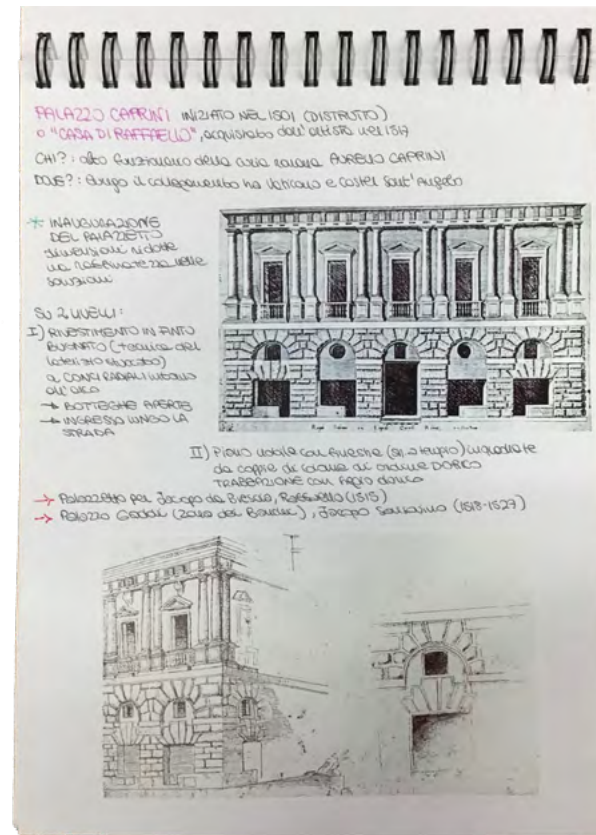 PALAZZO CAPRINI INIZIATO NEL 1501 (DISTRUTTO)
o "CASA DI RAFFAELLO", acquistato dall'artista nel 1517
CHI? : alto funzionario della curia romana AURELIO CAPRINI
DOVE? : lungo il collegamento tra Vaticano e Castel Sant'Angelo
* INAUGURAZIONE
DEL PALAZZETTO
dimensioni ridotte
ma raffinatezza nelle
soluzioni
SU 2 LIVELLI :
I) RIVESTIMENTO IN FINTO
BUGNATO (tecnica del
laterizio stuccato)
a CONCI RADIALI intorno
all'arco
→ BOTTEGHE APERTE
→ INGRESSO LUNGO LA
STRADA
II) Piano nobile con finestre (a tempio) inquadrate
da coppie di colonne di ordine DORICO
TRABEAZIONE con fregio dorico
→ Palazzetto per Jacopo da Brescia, Raffaello (1515)
→ Palazzo Gaddi (zona dei Banchi), Jacopo Sansovino (1518-1527)